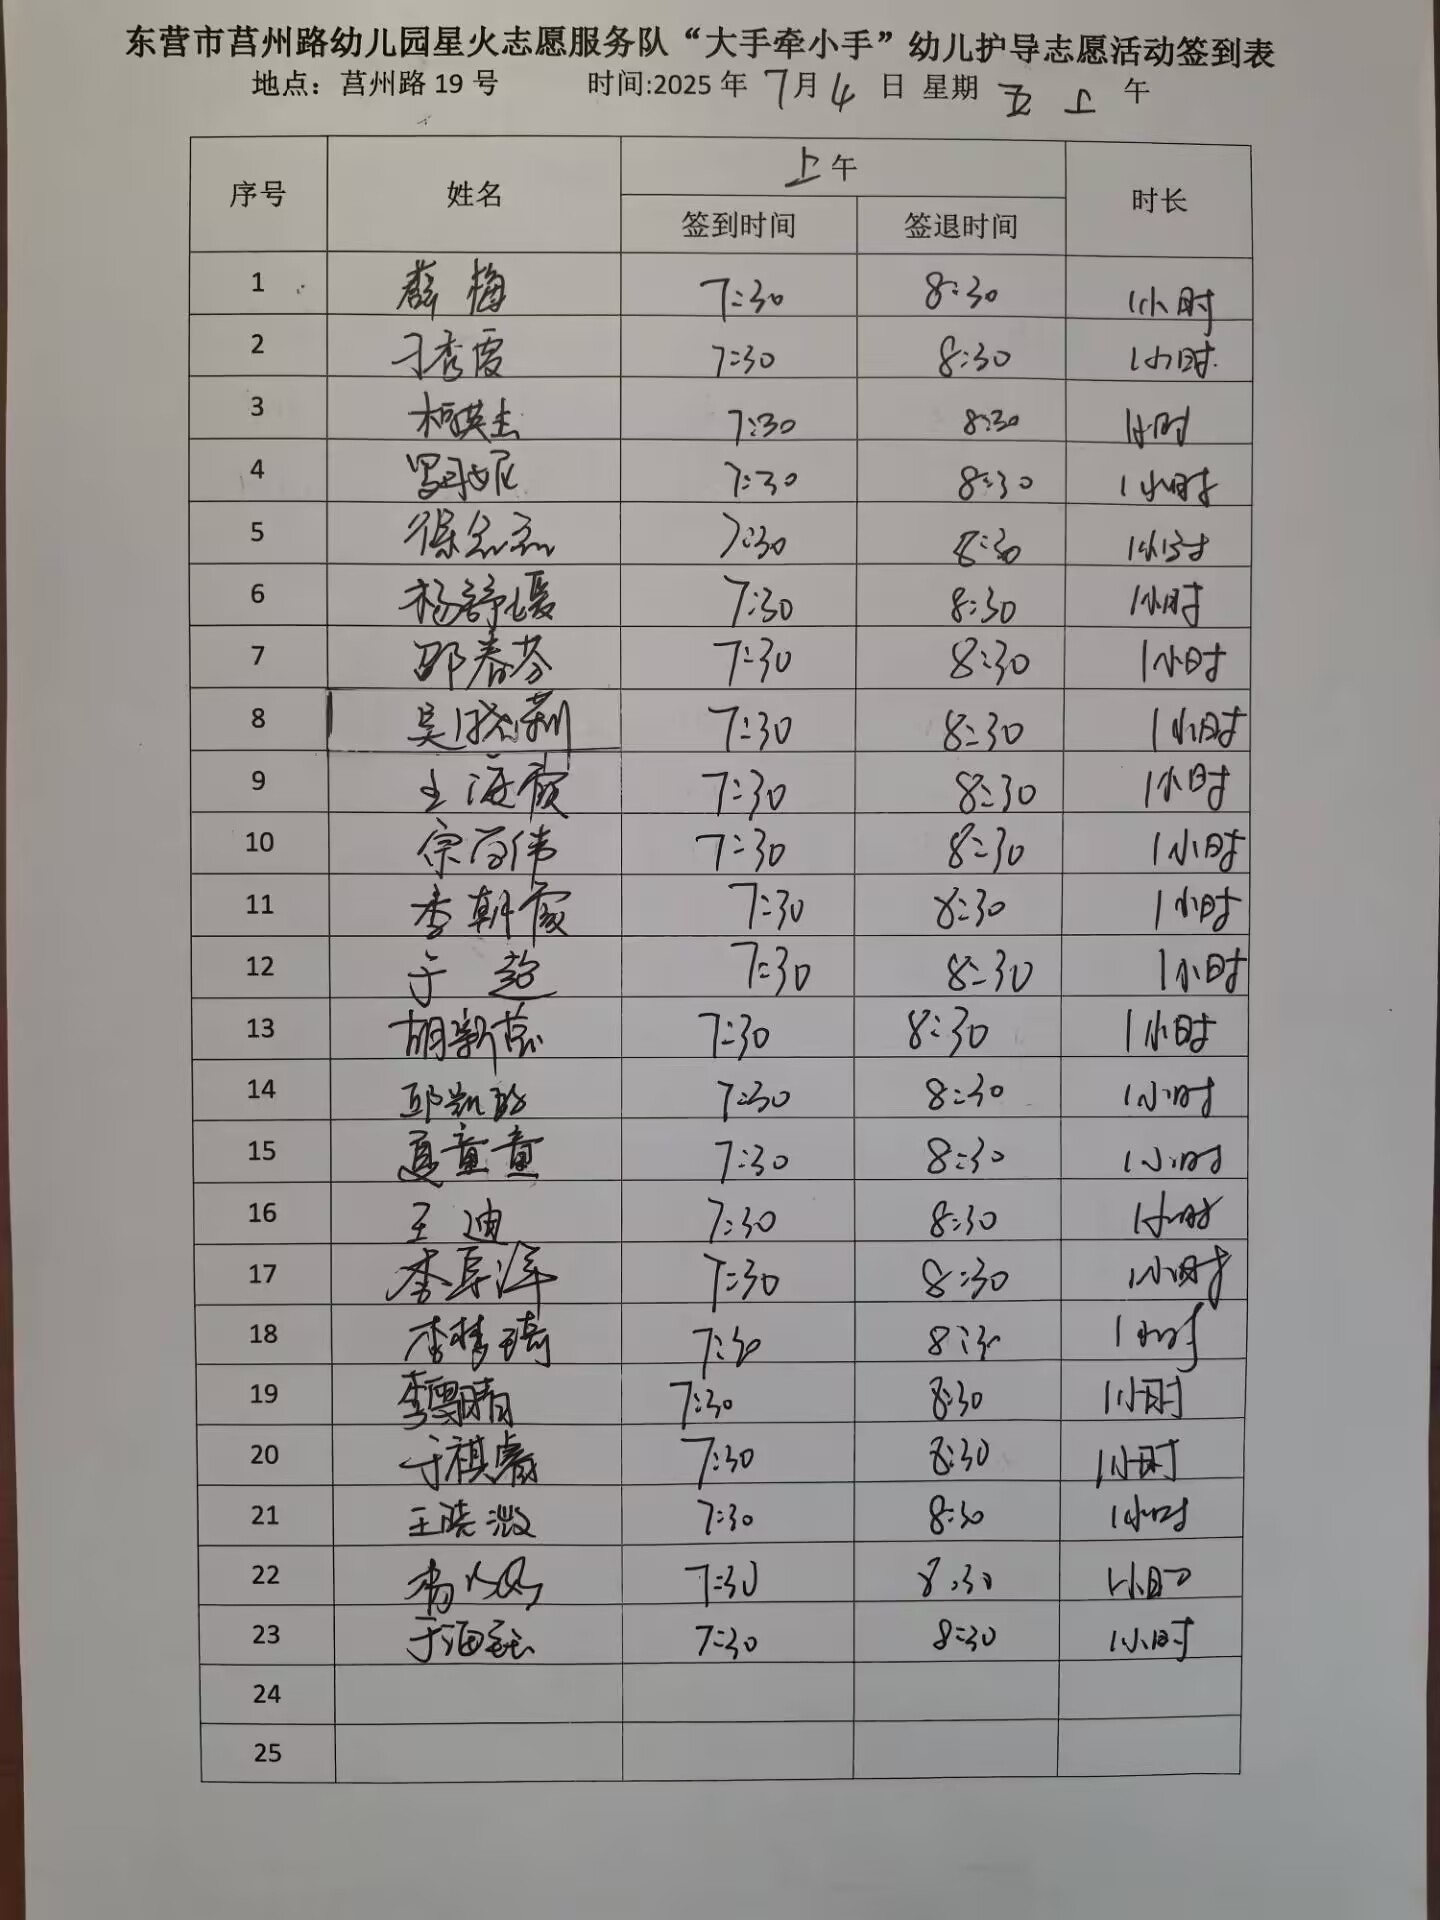 东营市莒州路幼儿园星火志愿服务队“大手牵小手”幼儿护导志愿活动签到表
地点：莒州路 19 号 时间:2025 年 7月 4 日 星期 五 上 午
序号 姓名 上午 时长
签到时间 签退时间
1 薛梅 7:30 8:30 1小时
2 刁秀霞 7:30 8:30 1小时
3 柏英杰 7:30 8:30 1小时
4 罗羽妮 7:30 8:30 1小时
5 徐杰杰 7:30 8:30 1小时
6 杨舒媛 7:30 8:30 1小时
7 邵春芬 7:30 8:30 1小时
8 吴晓莉 7:30 8:30 1小时
9 王海霞 7:30 8:30 1小时
10 宗百伟 7:30 8:30 1小时
11 李朝霞 7:30 8:30 1小时
12 于超 7:30 8:30 1小时
13 胡新蕊 7:30 8:30 1小时
14 邱凯 7:30 8:30 1小时
15 夏童童 7:30 8:30 1小时
16 王迪 7:30 8:30 1小时
17 李洋 7:30 8:30 1小时
18 李梦琦 7:30 8:30 1小时
19 李晴 7:30 8:30 1小时
20 于祺睿 7:30 8:30 1小时
21 王晓溦 7:30 8:30 1小时
22 杨 7:30 8:30 1小时
23 于海钰 7:30 8:30 1小时
24
25